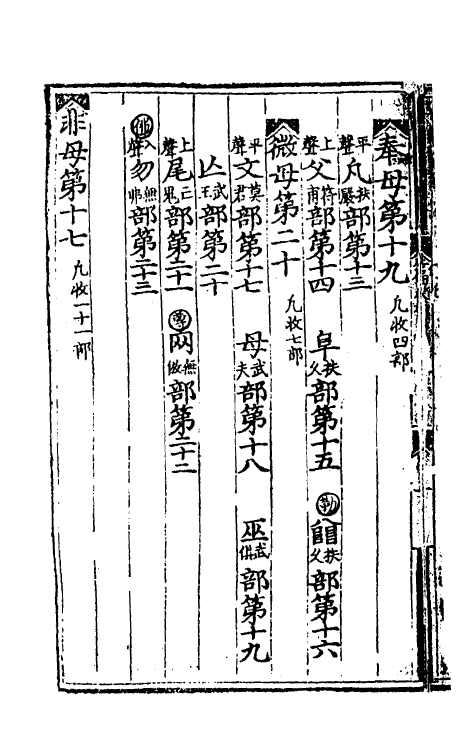 奉母第十九 凡收四部
平聲凡扶嚴部第十三
上聲父符甫部第十四 阜扶久部第十五 扶久部第十六
微母第二十 凡收七部
平聲文莫君部第十七 母武夫部第十八 巫武俱部第十九
亾武王部第二十
上聲尾亡鬼部第二十一 网無倣部第二十二
入聲勿無部第二十三
非母第十七 凡收一十一部